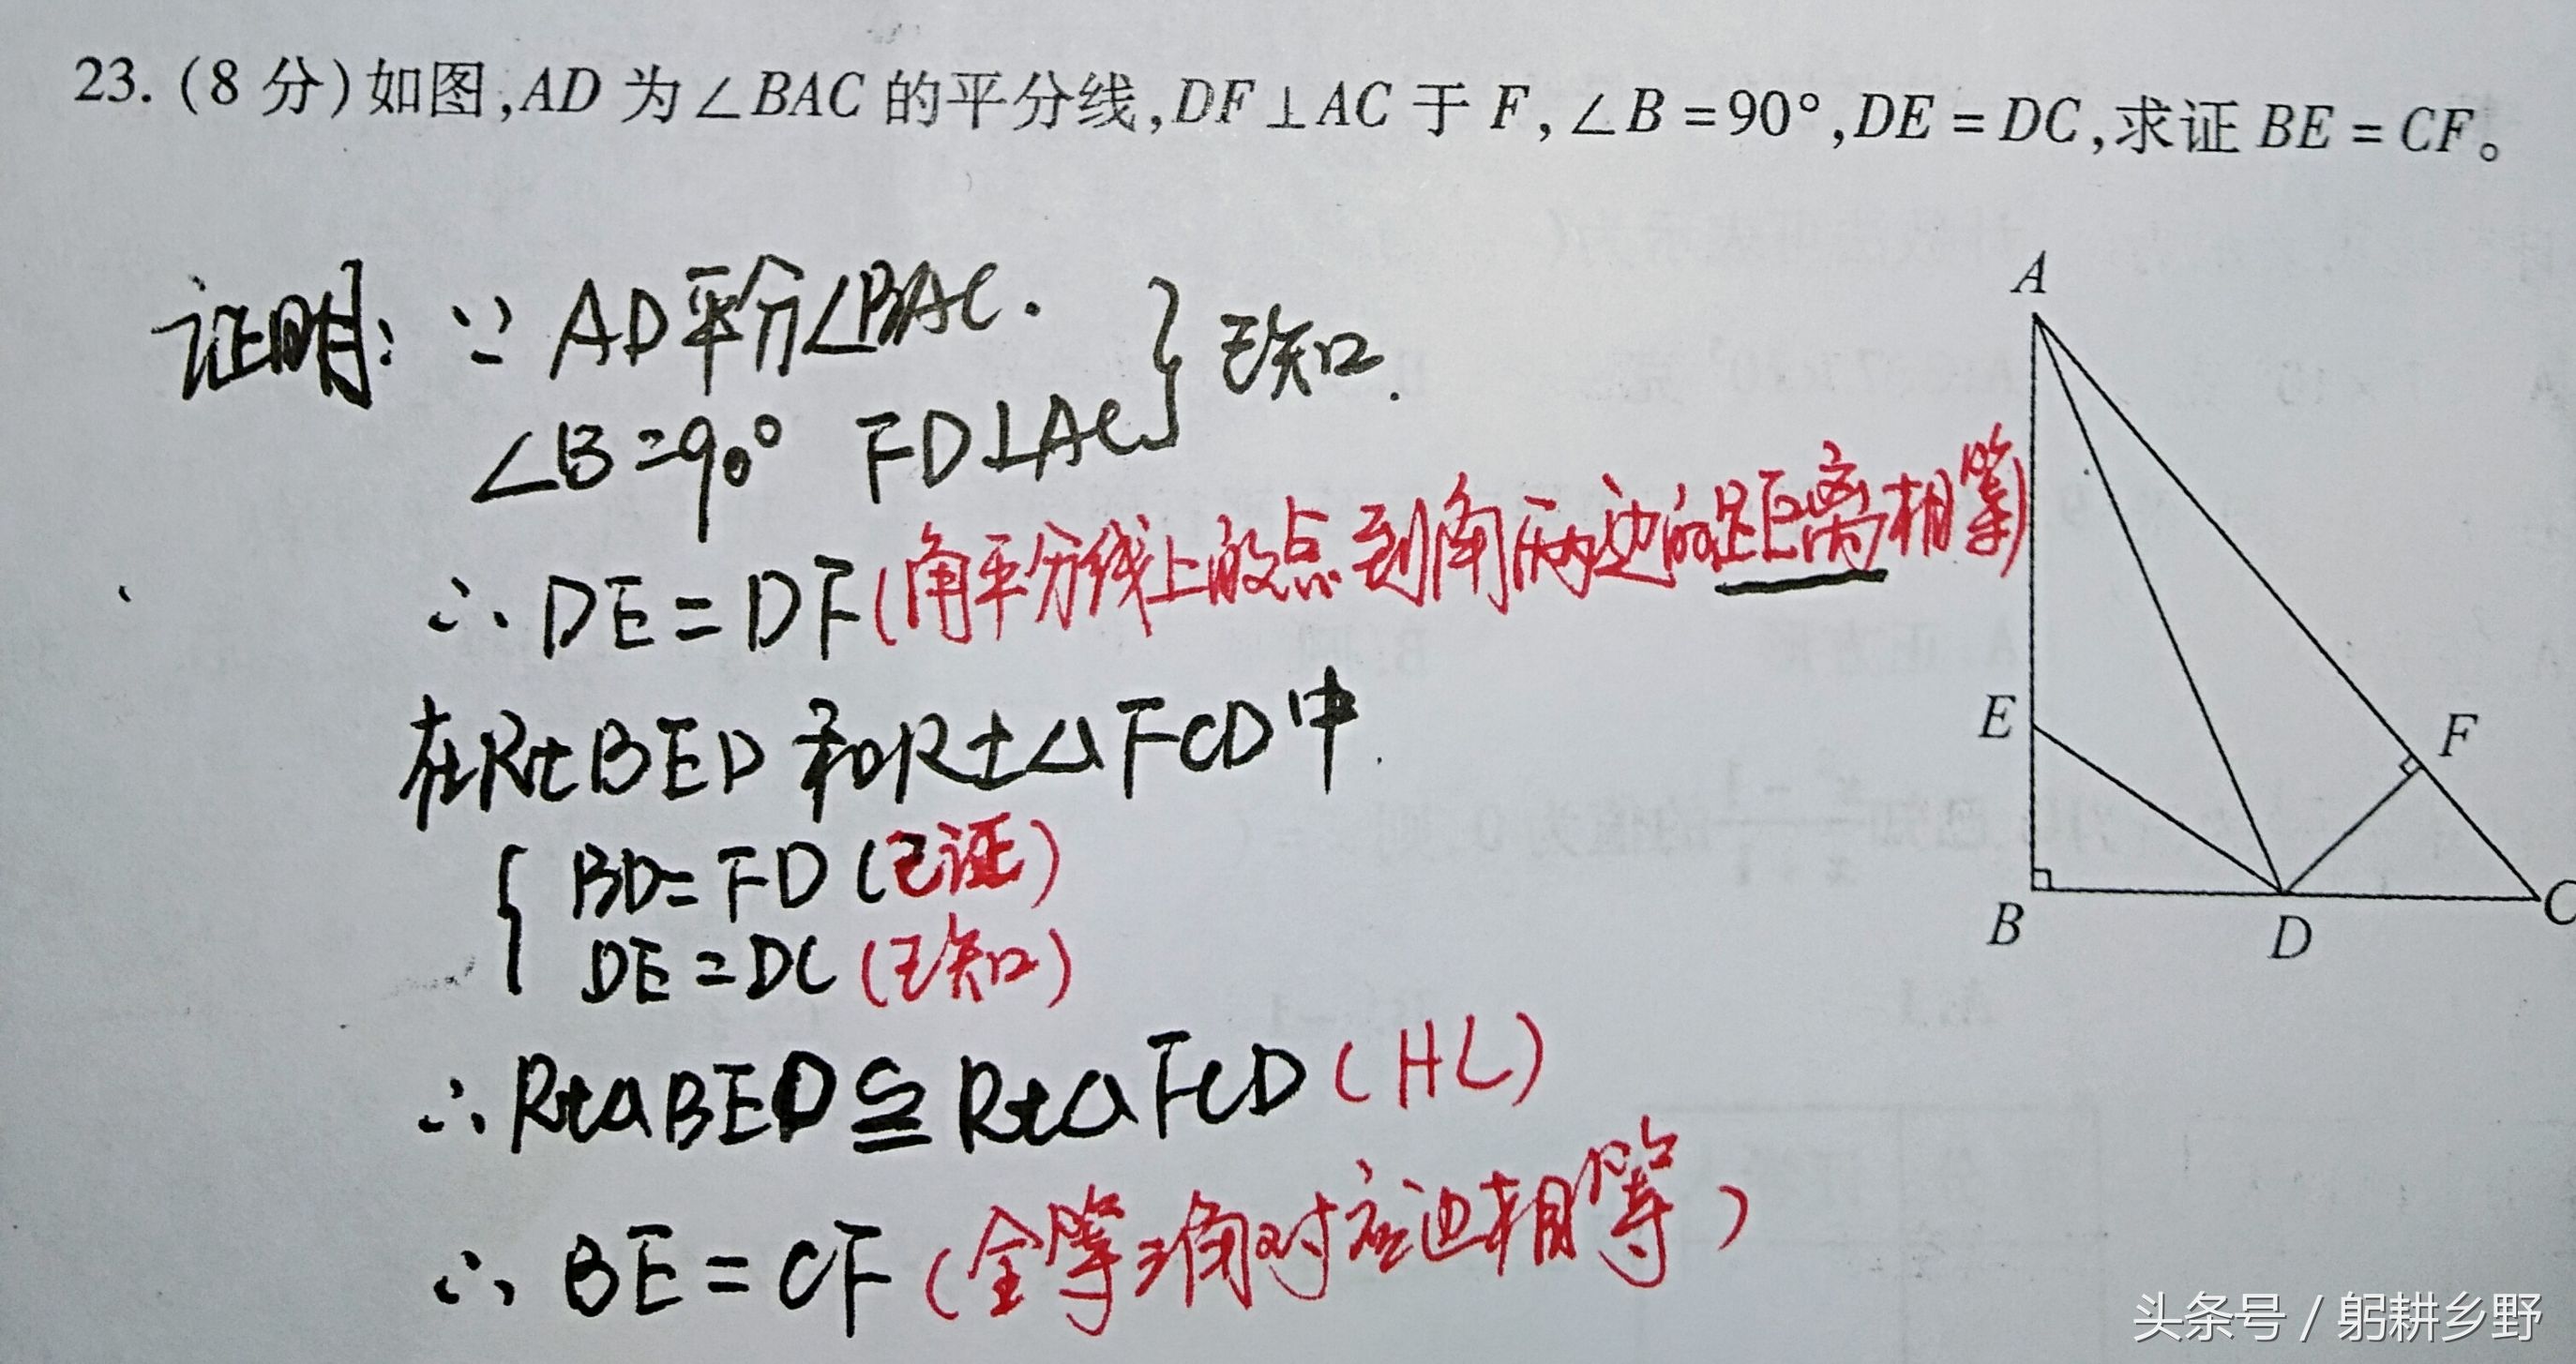 23. (8 分)如图,AD 为∠BAC 的平分线,DF⊥AC 于 F,∠B=90°,DE=DC,求证 BE=CF。
证明: ∵ AD平分∠BAC. } 已知.
∠B=90° FD⊥AC
∴ DE=DF (角平分线上的点到角两边的距离相等)
在Rt BED 和Rt△FCD中
{ BD=FD (已证)
DE=DC (已知)
∴ Rt△BED≌Rt△FCD (HL)
∴ BE=CF (全等三角对应边相等)
A
E
F
B
D
C
头条号 / 躬耕乡野